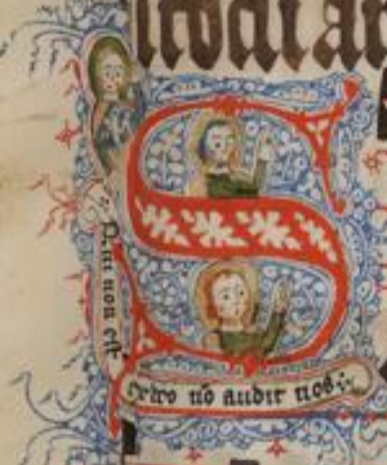 S
Qui non est
ex deo nō audit nos